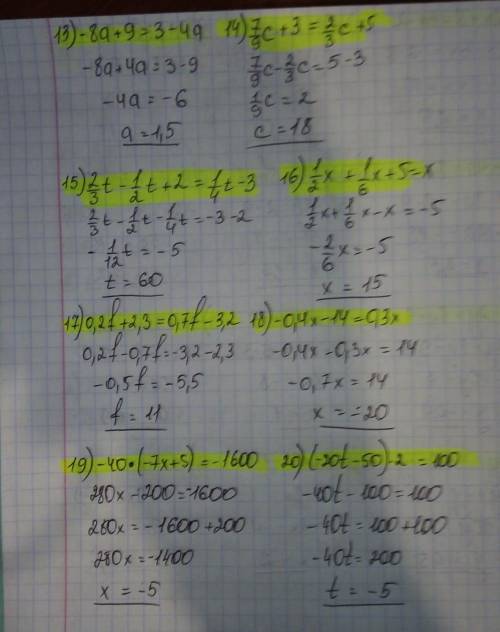 13) -8a+9=3-4a
-8a+4a=3-9
-4a=-6
a=1,5
14) 7/9c+3=2/3c+5
7/9c-2/3c=5-3
1/9c=2
c=18
15) 2/3t-1/2t+2=1/4t-3
2/3t-1/2t-1/4t=-3-2
-1/12t=-5
t=60
16) 1/2x+1/6x+5=x
1/2x+1/6x-x=-5
-2/6x=-5
x=15
17) 0,2f+2,3=0,7f-3,2
0,2f-0,7f=-3,2-2,3
-0,5f=-5,5
f=11
18) -0,4x-14=0,3x
-0,4x-0,3x=14
-0,7x=14
x=-20
19) -40•(-7x+5)=-1600
280x-200=-1600
280x=-1600+200
280x=-1400
x=-5
20) (-20t-50)•2=100
-40t-100=100
-40t=100+100
-40t=200
t=-5